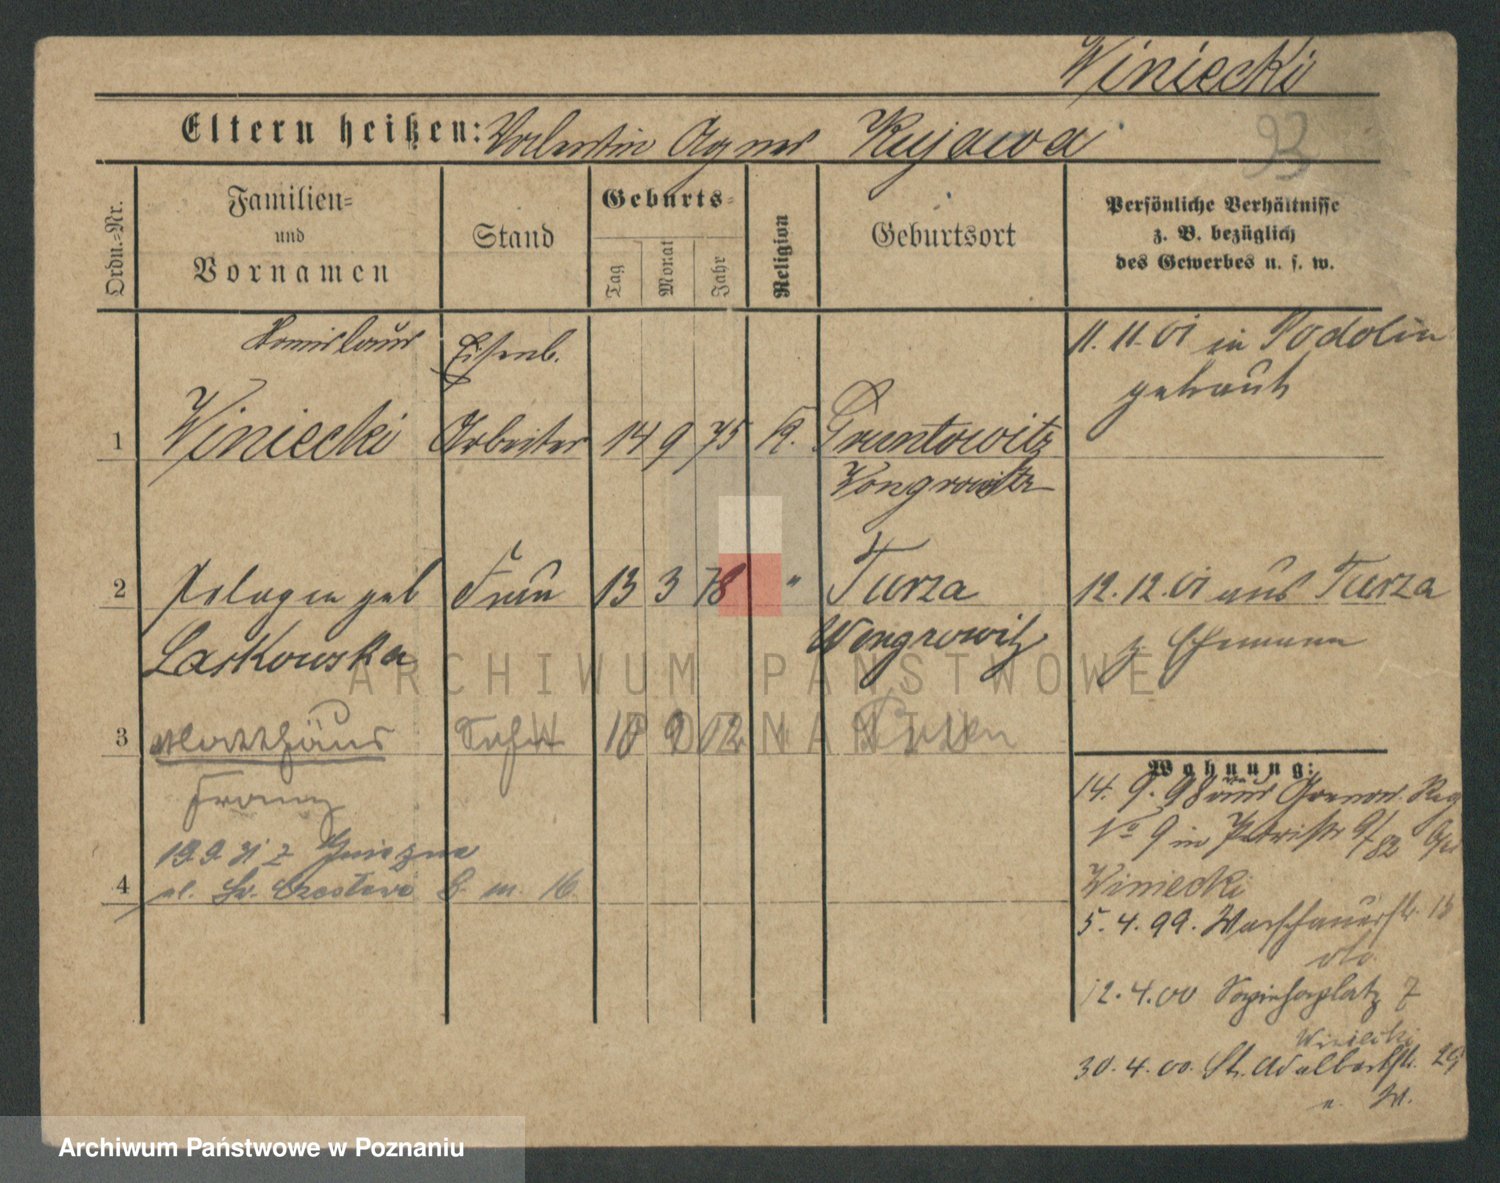 Winiecki
Eltern heißen: Valentin Agnes Kujawa
93
Ordn.-Nr.
Familien=
und
Vornamen
Stand
Geburts=
Tag
Monat
Jahr
Religion
Geburtsort
Persönliche Verhältnisse
z. B. bezüglich
des Gewerbes u. s. w.
Stanislaus Eisenb. 11. 11. 01 in Podolin
getraut
1 Winiecki Arbeiter 14 9 75 K.
Wongrowitz
2 Pelagia geb Frau 13 3 78 " Turza 12. 12. 01 aus Turza
Laskowska Wongrowitz z Ehemann
ARCHIWUM PAŃSTWOWE
W POZNANIU
3 Matthäus Sohn 18 9 12 Posen
Franz
Wohnung:
14. 9. 98 aus
No 9 in Petristr
19.9.31 z Gniezna
4 ul. Św. Czesława m. 16
Winiecki
5. 4. 99. Warschauerstr. 15
12. 4. 00 Sapiehaplatz 7
Winiecki
30. 4. 00. St. Adalbertstr. 29
Archiwum Państwowe w Poznaniu